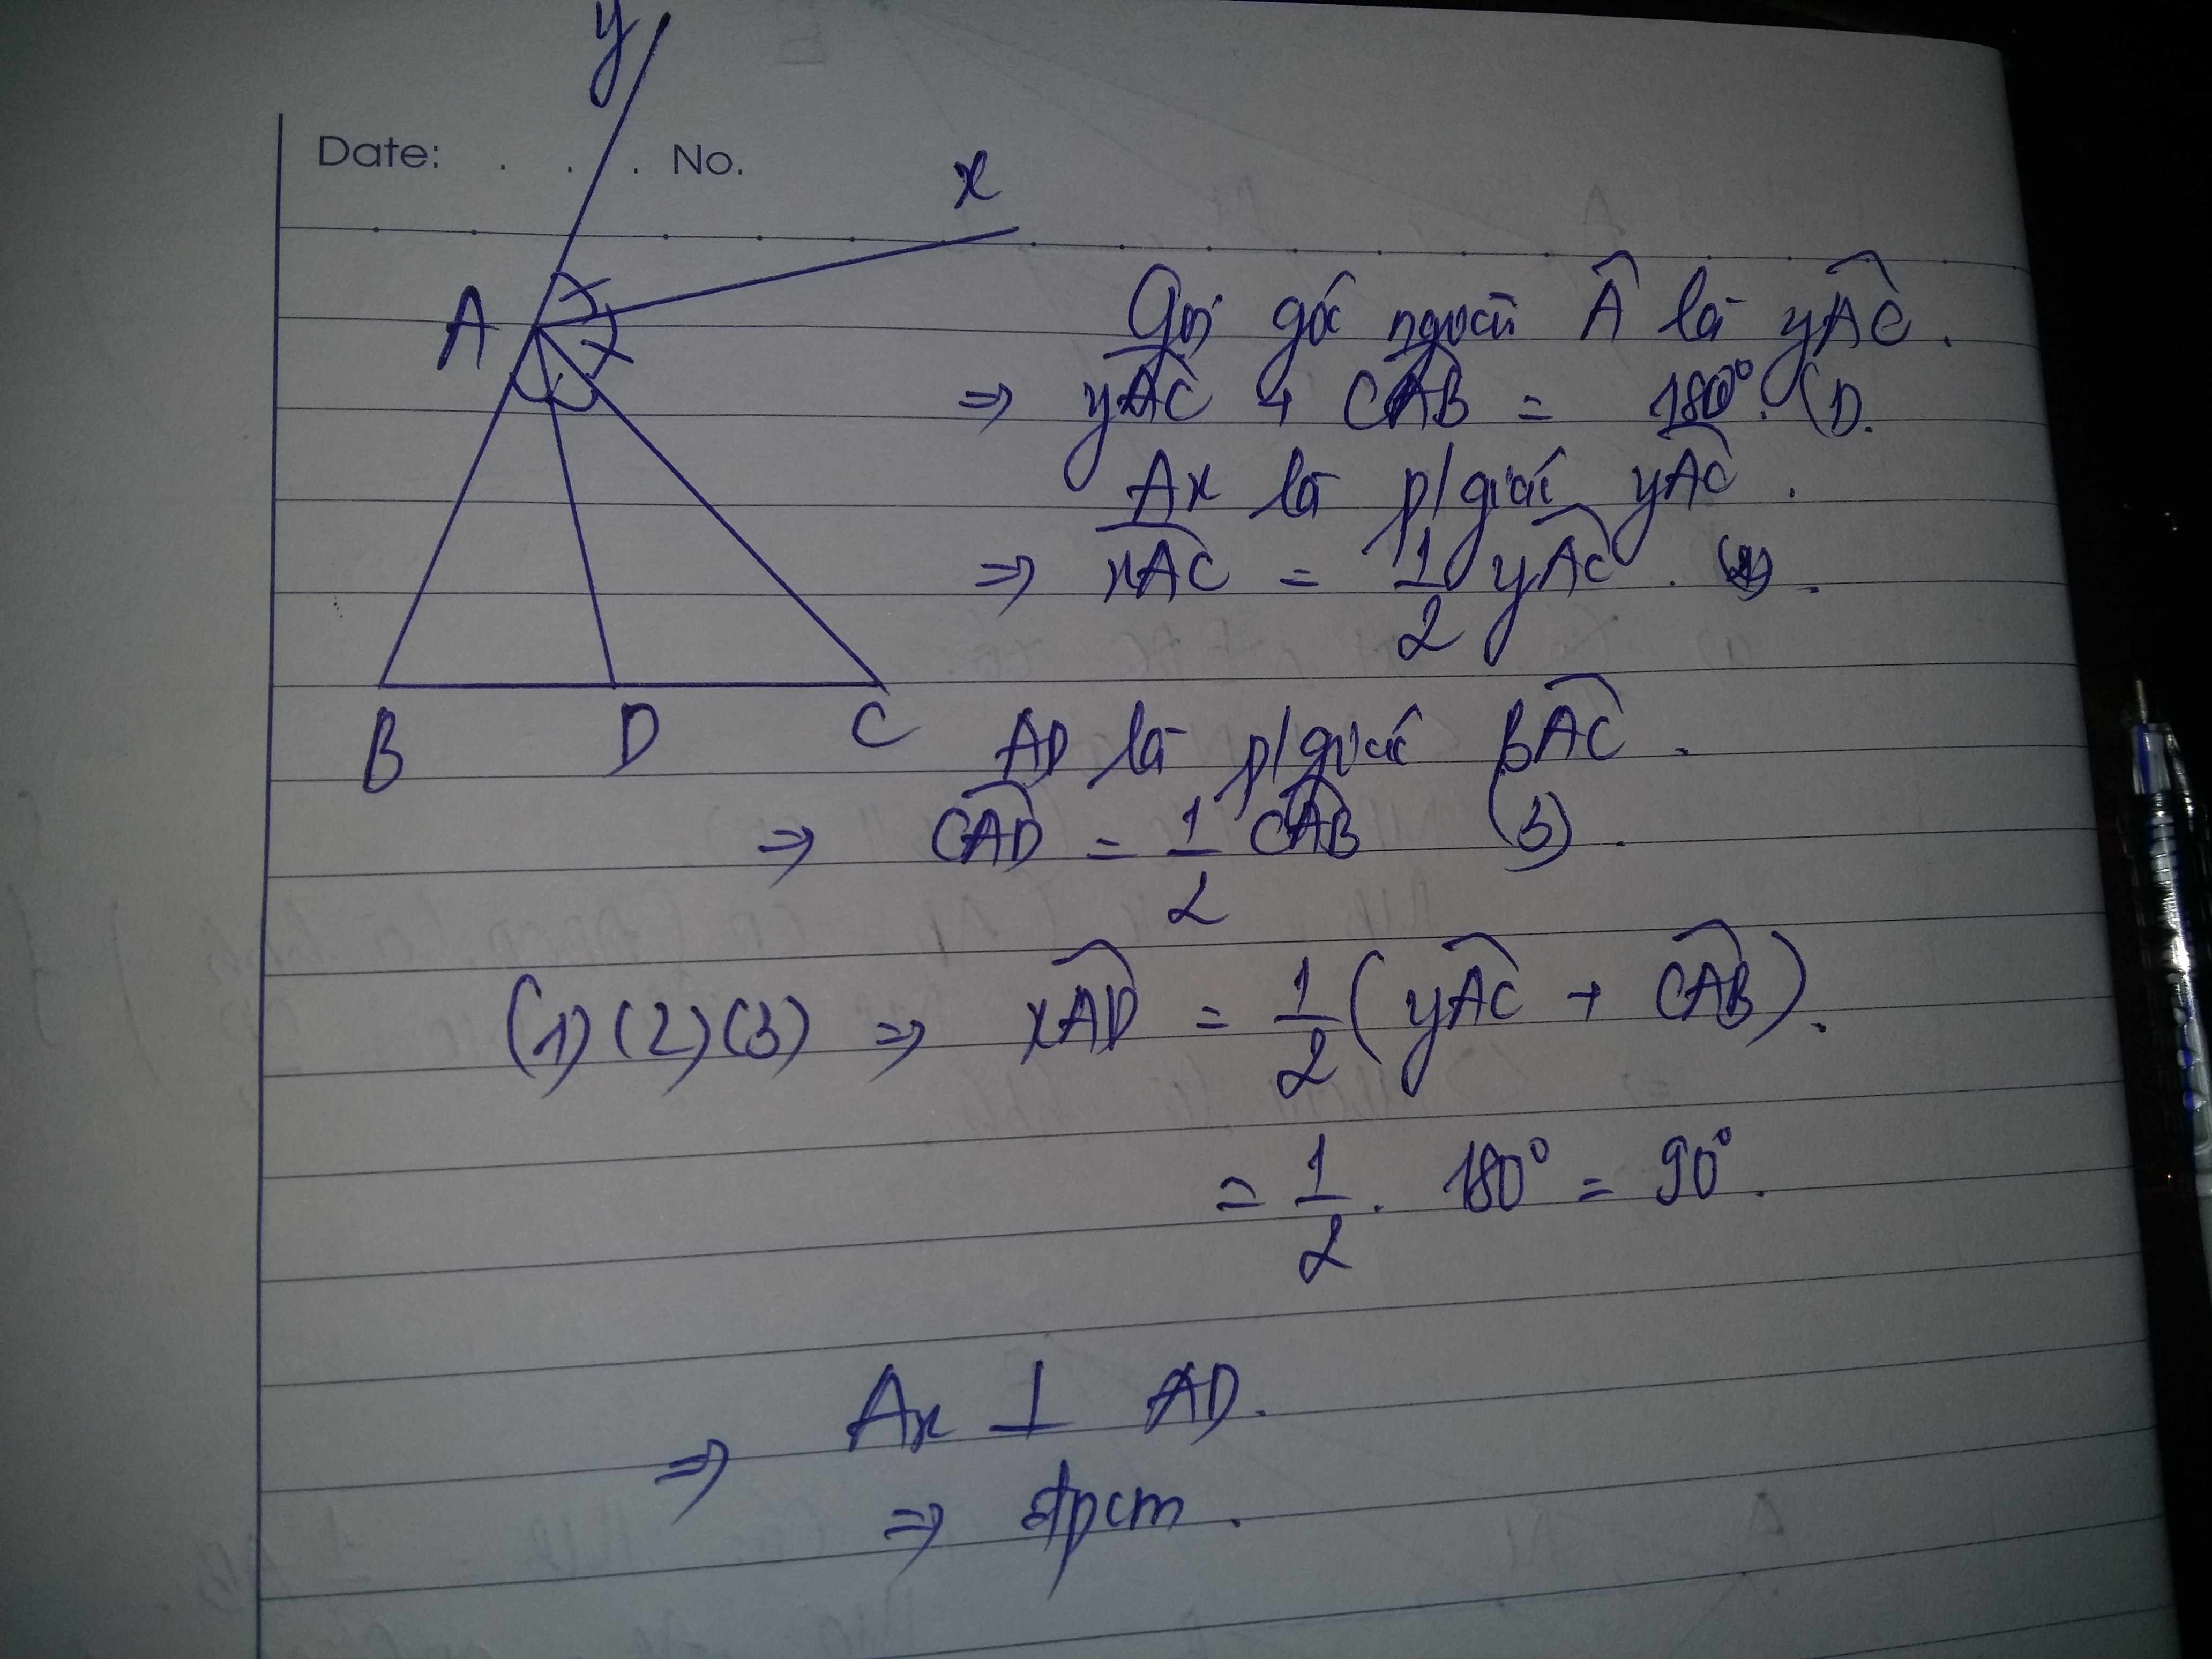 y
Date: . . . No.
x
A
Gọi góc ngoài Â là yÂC.
⇒ yÂC + CÂB = 180°. (1).
Ax là p/giác yÂC.
⇒ xÂC = 1/2 yÂC. (2).
B D C
AD là p/giác BÂC.
⇒ CÂD = 1/2 CÂB (3).
(1)(2)(3) ⇒ xÂD = 1/2 (yÂC + CÂB).
= 1/2 . 180° = 90°.
⇒ Ax ⊥ AD.
⇒ đpcm.